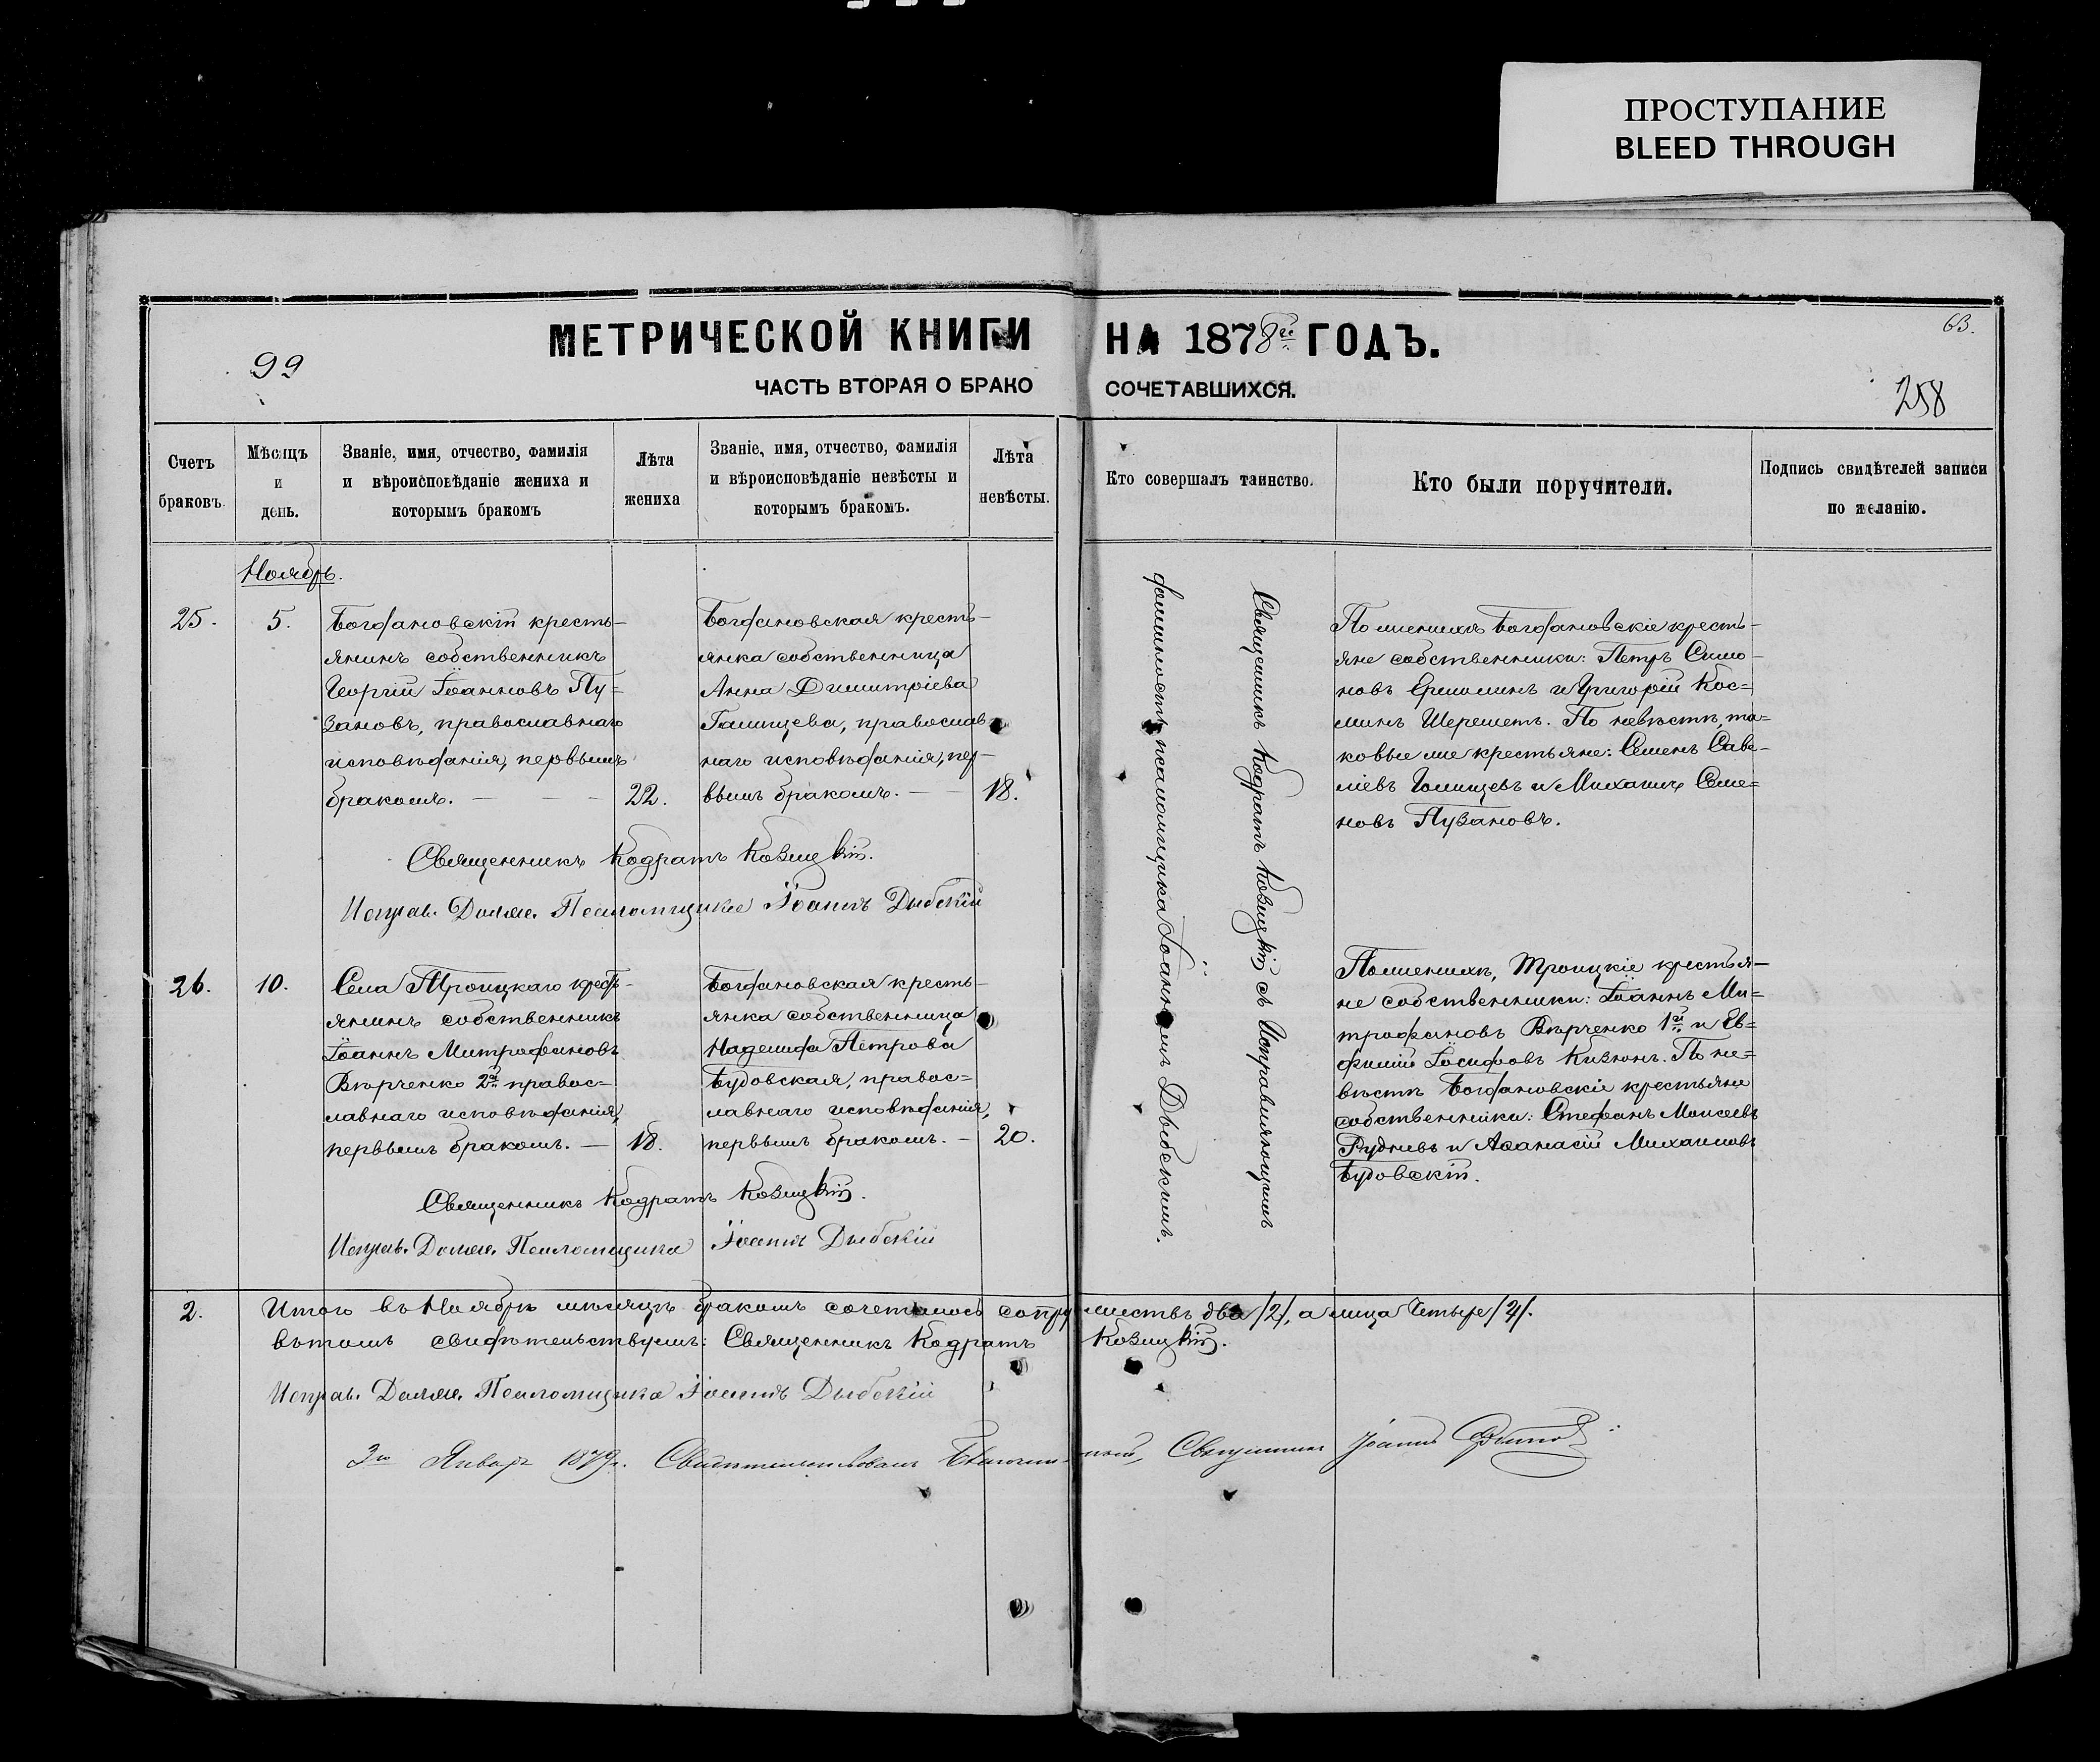 ПРОСТУПАНИЕ
BLEED THROUGH
МЕТРИЧЕСКОЙ КНИГИ НА 1878й ГОДЪ.
63.
99
ЧАСТЬ ВТОРАЯ О БРАКОСОЧЕТАВШИХСЯ.
258
Счетъ
браковъ.
Мѣсяцъ
и
день.
Званіе, имя, отчество, фамилія
и вѣроисповѣданіе жениха и
которымъ бракомъ
Лѣта
жениха
Званіе, имя, отчество, фамилія
и вѣроисповѣданіе невѣсты и
которымъ бракомъ.
Лѣта
невѣсты.
Кто совершалъ таинство.
Кто были поручители.
Подпись свидѣтелей записи
по желанію.
Ноябрь.
25.
5.
Богдановскій кресть-
янинъ собственникъ
Георгій Іоанновъ Пу=
зановъ, православнаго
исповѣданія, первымъ
бракомъ. —
22.
Богдановская кресть-
янка собственница
Анна Димитріева
православ-
наго исповѣданія, пер-
вымъ бракомъ. —
18.
Священникъ Кодратъ Козицкій.
Исправ. Долж. Псаломщика Іоаннъ Дыбскій
Священникъ Кодратъ Козицкій съ Исправляющимъ
должность псаломщика Іоанномъ Дыбскимъ.
По женихѣ Богдановскіе кресть-
яне собственники: Петръ Симо-
новъ Ермолинъ и Григорій Кос=
минъ Шереметъ. По невѣстѣ, та=
ковые же крестьяне: Семенъ Саве-
ліевъ и Михаилъ Семе=
новъ Пузановъ.
26.
10.
Села Троицкаго крест-
янинъ собственникъ
Іоаннъ Митрофановъ
Вѣрченко 2й правос=
лавнаго исповѣданія,
первымъ бракомъ. —
18.
Богдановская кресть-
янка собственница
Надежда Петрова
Будовская, правос=
лавнаго исповѣданія,
первымъ бракомъ. —
20.
По женихѣ, Троицкіе крестья-
не собственники: Іоаннъ Ми=
трофановъ Вѣрченко 1й и Ев=
фимій Іосифовъ Кизюнъ. По не=
вѣстѣ Богдановскіе крестьяне
собственники: Стефанъ Моисеевъ
Рудневъ и Аѳанасій Михаиловъ
Будовскій.
Священникъ Кодратъ Козицкій.
Исправ. Долж. Псаломщика Іоаннъ Дыбскій
2.
Итого въ Ноябрѣ мѣсяцѣ бракомъ сочеталось супружествъ два /2/, а лица Четыре /4/.
въ томъ свидѣтельствуемъ: Священникъ Кодратъ Козицкій.
Исправ. Долж. Псаломщика Іоаннъ Дыбскій
3го Января 1879г. Свидѣтельствовалъ Благочинный, Священникъ Іоаннъ